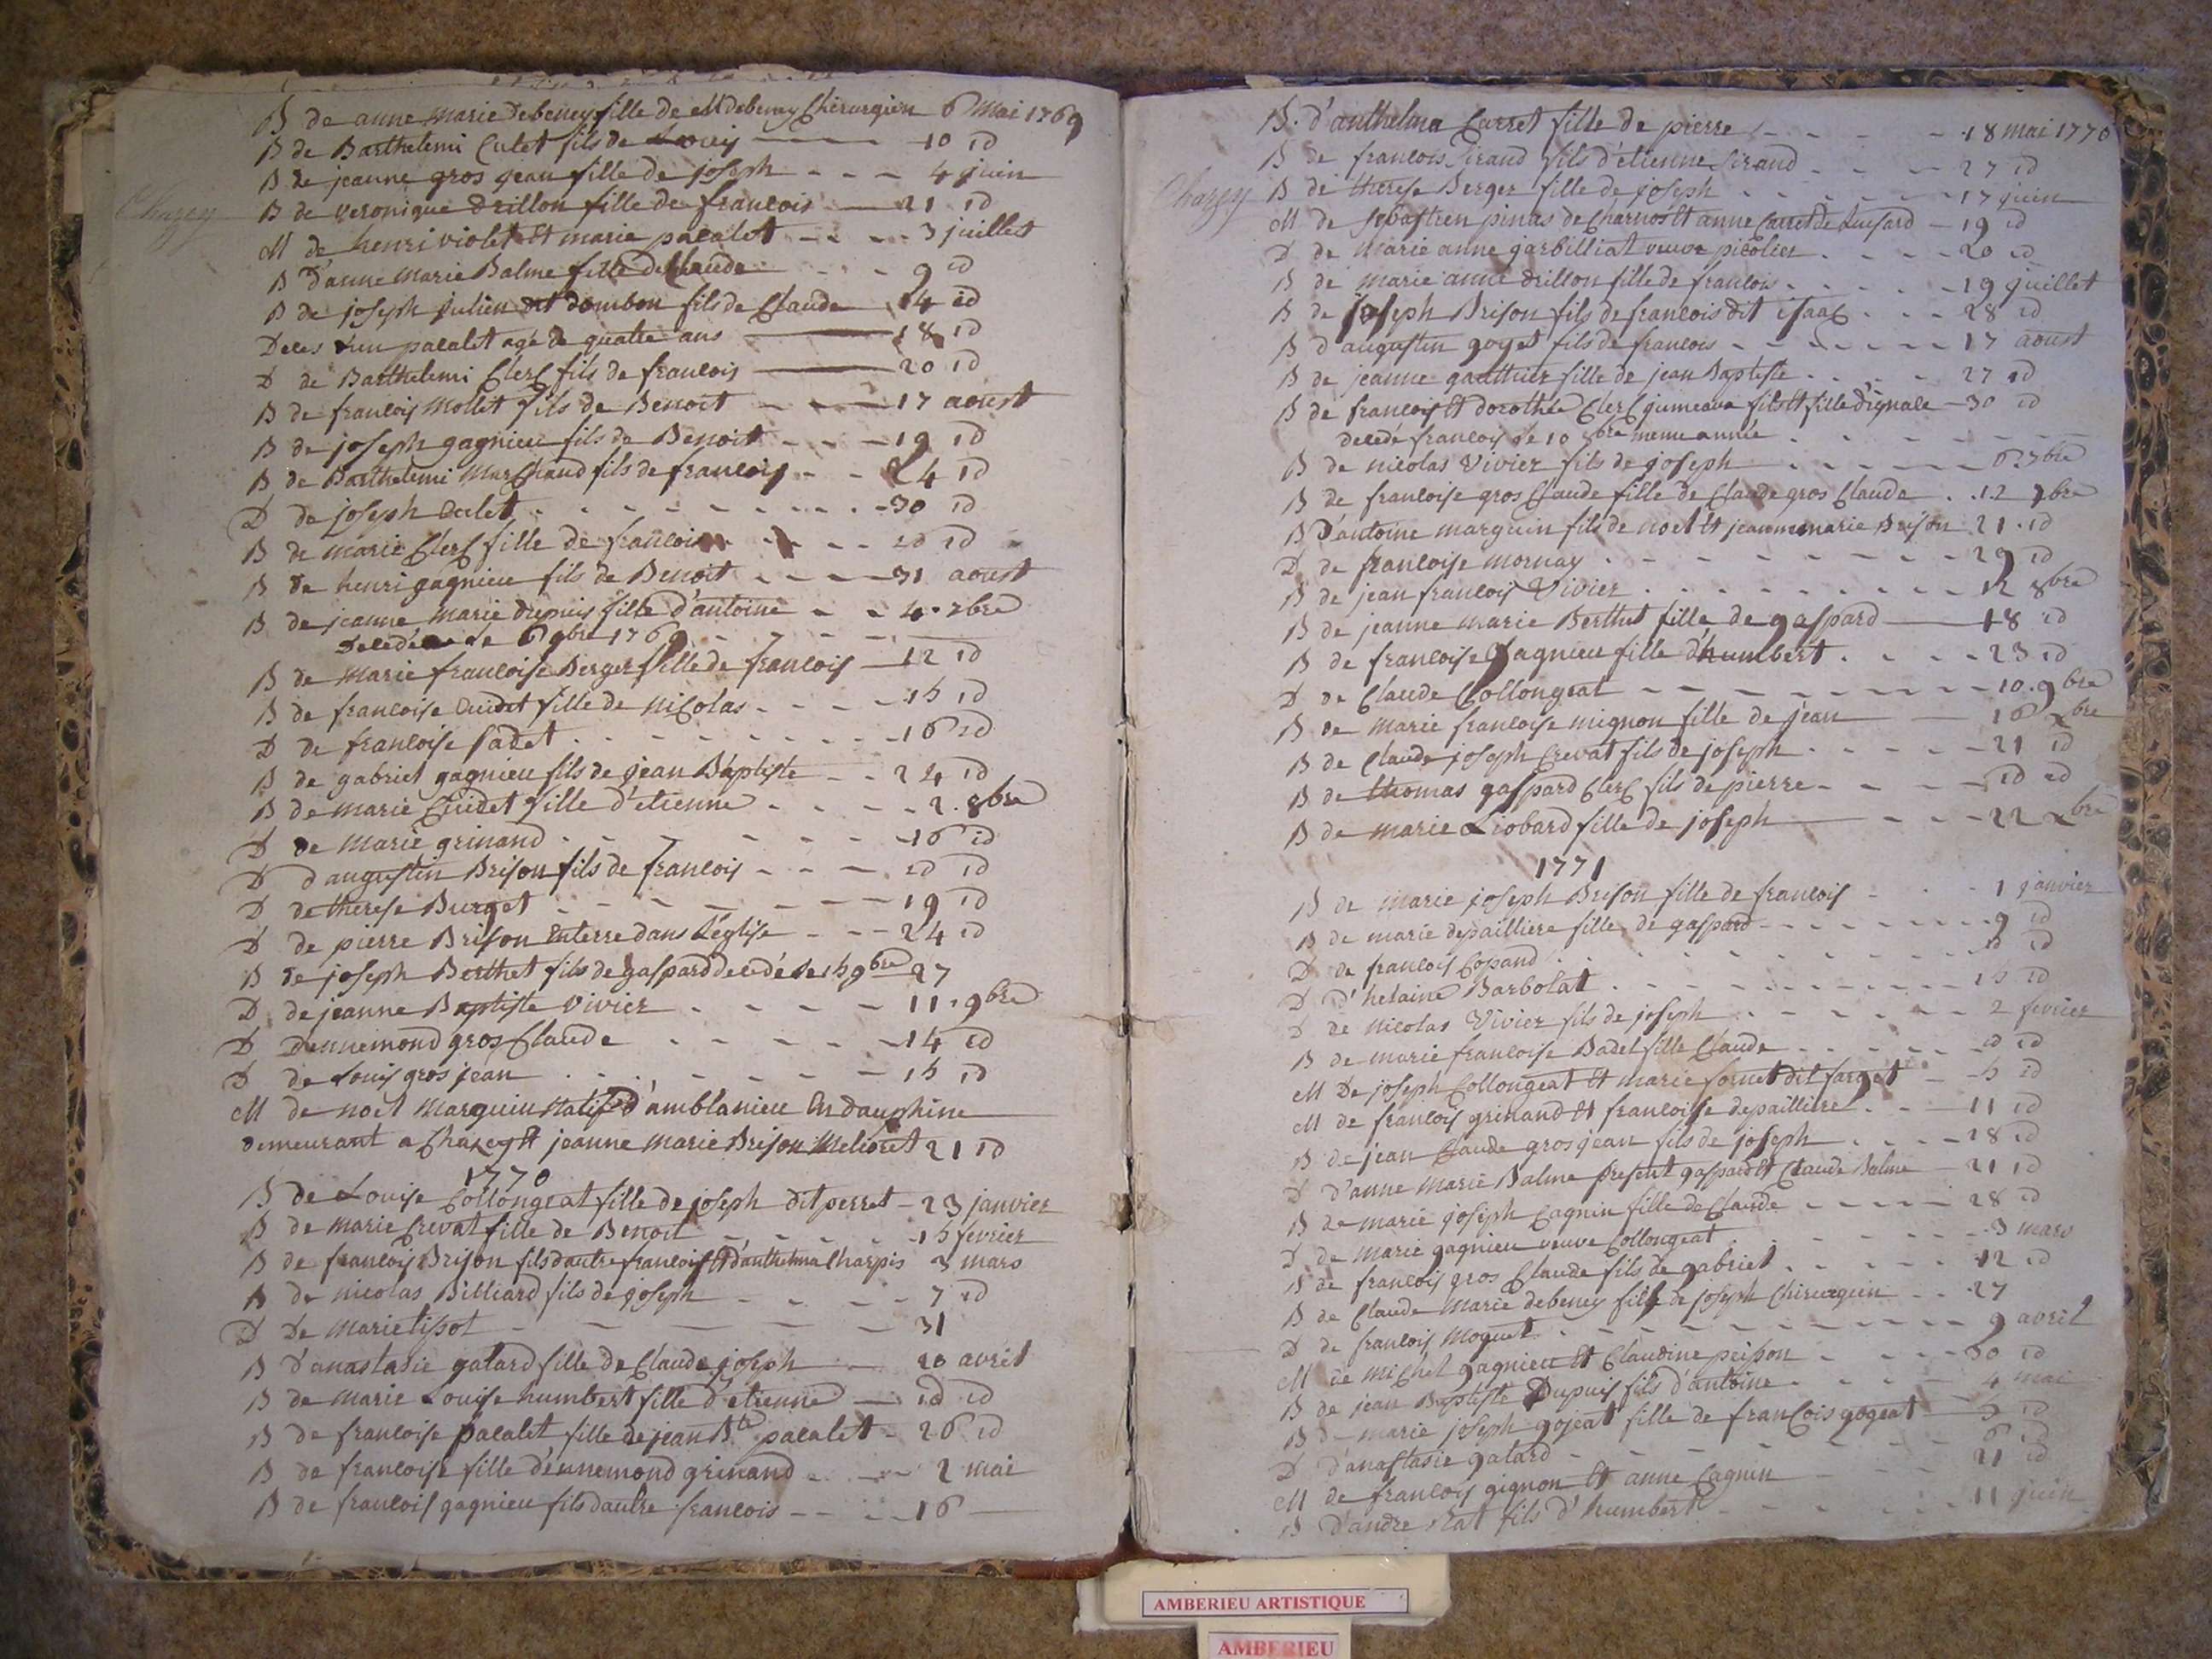 B de anne marie debeney fille de Mdebeney Chirurgien 6 Mai 1769
B de Barthelemi Culet fils de Louis 10 id
B de jeanne gros jean fille de joseph 4 juin
Chazey B de veronique drillon fille de francois 21 id
M de henri violet Et marie pacalet 3 juillet
B D'anne Marie Balme fille de Claude 9 id
B de joseph julien dit dombon fils de Claude 14 id
Deces d'un pacalet agé de quatre ans 18 id
D de Barthelemi Clerc fils de francois 20 id
B de francois Mollet fils de Benoit 17 aoust
B de joseph gagnieu fils de Benoit 19 id
B de Barthelemi Marchand fils de francois 24 id
D de joseph Culet 30 id
B de marie Clerc fille de francois id id
B de henri gagnieu fils de Benoit 31 aoust
B de jeanne marie dupuis fille d'antoine 4 7bre
Decedée le 6 9bre 1769
B de Marie francoise Berger fille de francois 12 id
B de francoise Cuidet fille de Nicolas 15 id
D de francoise sadet 16 id
B de gabriel gagnieu fils de jean Baptiste 24 id
B de marie Cuidet fille d'etienne 2 8bre
D de Marie grinand 16 id
D d'augustin Brison fils de francois id id
D de therese Burget 19 id
D de pierre Brison Enterre dans L'église 24 id
B de joseph Berthet fils de gaspard decedé le 15 9bre 27
D de jeanne Baptiste Vivier 11 9bre
D Dennemond gros Claude 14 id
D de Louis gros jean 15 id
M de noel Marguin Natif d'amblanieu En dauphine
demeurant a Chazey Et jeanne Marie Brison Melioret 21 id
1770
B de Louise Collongeat fille de joseph dit perret 23 janvier
B de marie Crevat fille de Benoit 15 fevrier
B de francois Brison fils d'autre francois Et d'anthelma Charpis 3 mars
B de nicolas Billiard fils de joseph 7 id
D De Marie tissot 31
B D'anastasie galard fille de Claude joseph 20 avril
B de Marie Louise humbert fille d'etienne id id
B de francoise pacalet fille de jean Bte pacalet 26 id
B de francoise fille d'ennemond grinand 2 mai
B de francois gagnieu fils d'autre francois 16
B. d'anthelma Carret fille de pierre 18 mai 1770
B de francois Sirand fils d'etienne Sirand 27 id
Chazey B de therese Berger fille de joseph 17 juin
M de Sebastien pinas de Charnos Et anne Carret de Luisard 19 id
D de Marie anne garbilliat veuve picolier 20 id
B de marie anne drillon fille de francois 19 juillet
B de joseph Brison fils de francois dit isaac 28 id
B d'augustin goyet fils de francois 17 aoust
B de jeanne gauthier fille de jean Baptiste 27 id
B de francois Et dorothée Clerc jumeaux fils Et fille d'ignace 30 id
decedé francois le 10 8bre meme année
B de nicolas Vivier fils de joseph 6 7bre
B de francoise gros Claude fille de Claude gros Claude 12 7bre
B D'antoine marguin fils de noel Et jeanne marie Brison 21 id
D de francoise mornay 29 id
B de jean francois Vivier 12 8bre
B de jeanne marie Berthet fille de gaspard 18 id
B de francoise Gagnieu fille d'humbert 23 id
D de Claude Collongeat 10 9bre
B de Marie francoise mignon fille de jean 16 xbre
B de Claude joseph Crevat fils de joseph 21 id
B de thomas gaspard Clerc fils de pierre id id
B de marie Liobard fille de joseph 22 xbre
1771
B de marie joseph Brison fille de francois 1 janvier
B de marie depailliere fille de gaspard 9 id
D de francois Copand id id
D d'helaine Barbolat 15 id
D de Nicolas Vivier fils de joseph 2 fevrier
B de marie francoise Badet fille Claude id id
M De joseph Collongeat Et marie sornet dit farget 5 id
M de francois grinand Et francoise depailliere 11 id
B de jean Claude gros jean fils de joseph 18 id
D d'anne Marie Balme present gaspard Et Claude Balme 21 id
B de marie joseph Cagnin fille de Claude 28 id
D de Marie gagnieu veuve Collongeat 3 mars
B de francois gros Claude fils de gabriel 12 id
B de Claude Marie debeney fils de joseph Chirurgien 27
D de francois Moguet 9 avril
M de Michel gagnieu Et Claudine peisson 30 id
B de jean Baptiste Dupuis fils d'antoine 4 mai
B de marie joseph gojeat fille de francois gogeat 5 id
D D'anastasie galard 6 id
M de francois gignon Et anne Cagnin 21 id
B D'andre rat fils d'humbert 11 juin
AMBERIEU ARTISTIQUE
AMBERIEU